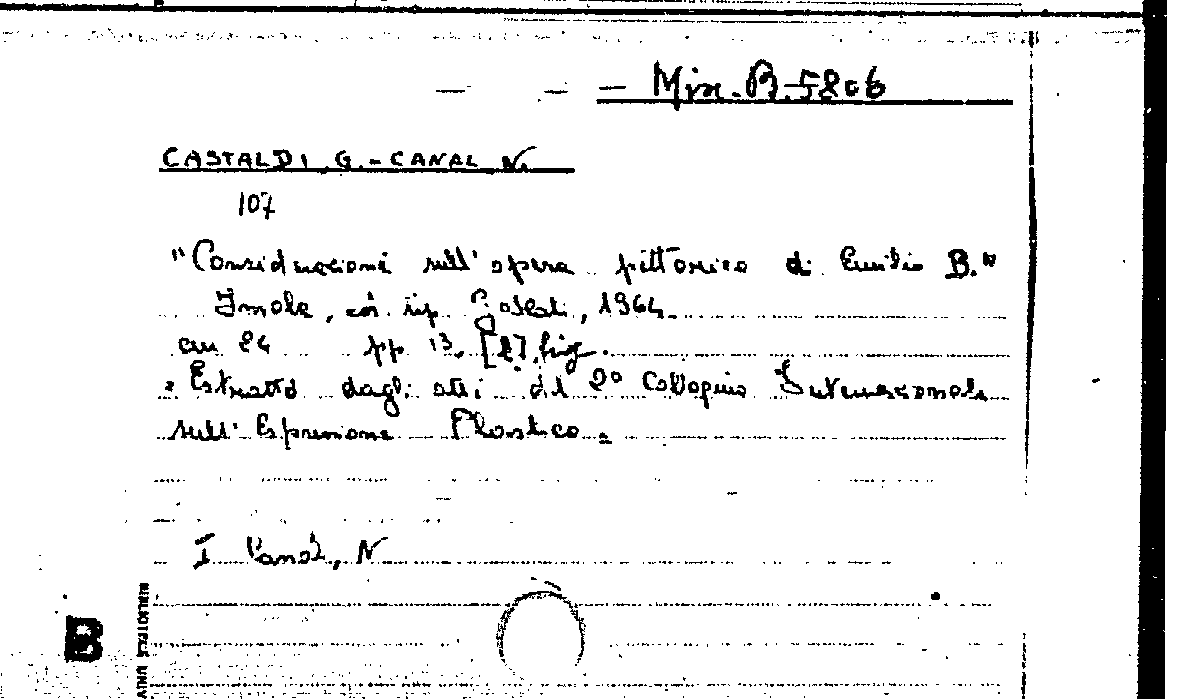 — — — Misc. B. 5806
CASTALDI G. - CANAL N.
107
"Considerazioni sull'opera pittorica di Emilio B."
Imola, co. tip. Galeati, 1964.
cm 24 pp 13, [2], fig.
Estratto dagli atti del 2° Colloquio Internazionale
sull'Espressione Plastica.
I Canal, N
B